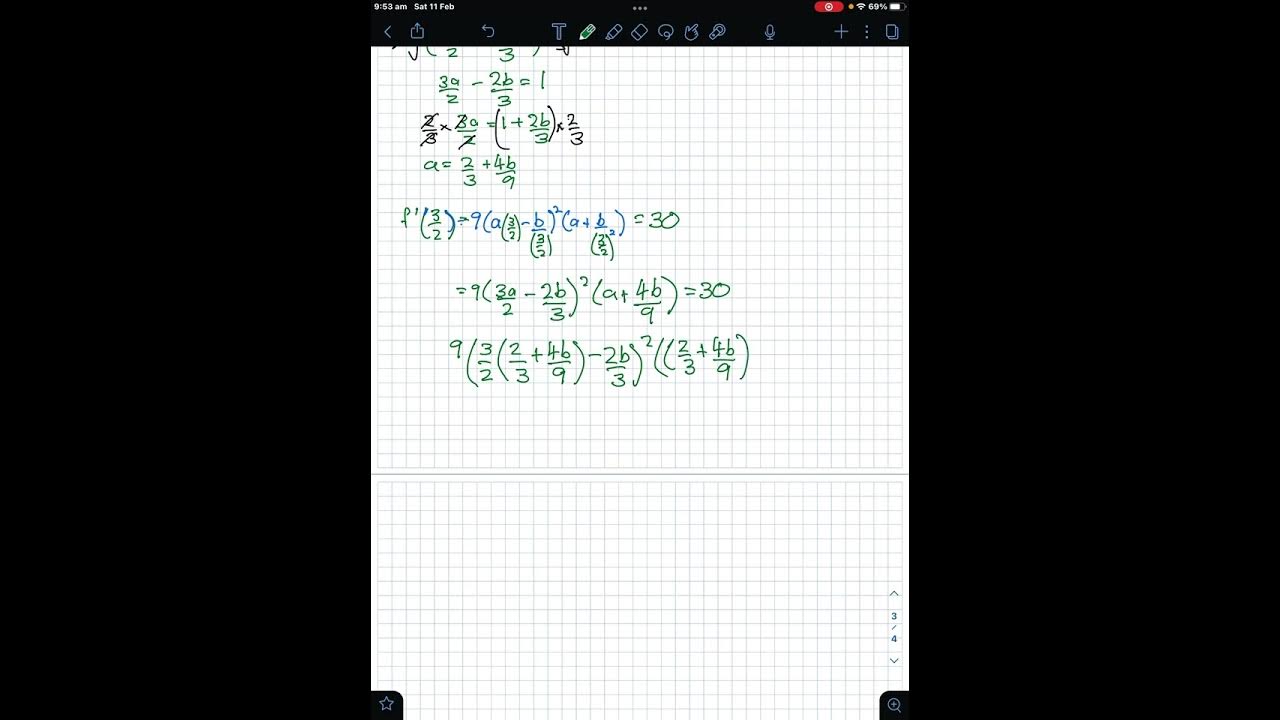 9:53 am Sat 11 Feb 69%
2 3
3a/2 - 2b/3 = 1
2/3 × 3a/2 = (1 + 2b/3) × 2/3
a = 2/3 + 4b/9
f'(3/2) = 9(a(3/2) - b/(3/2))²(a + b/(3/2)²) = 30
= 9(3a/2 - 2b/3)²(a + 4b/9) = 30
9(3/2(2/3 + 4b/9) - 2b/3)²((2/3 + 4b/9)
3
/
4